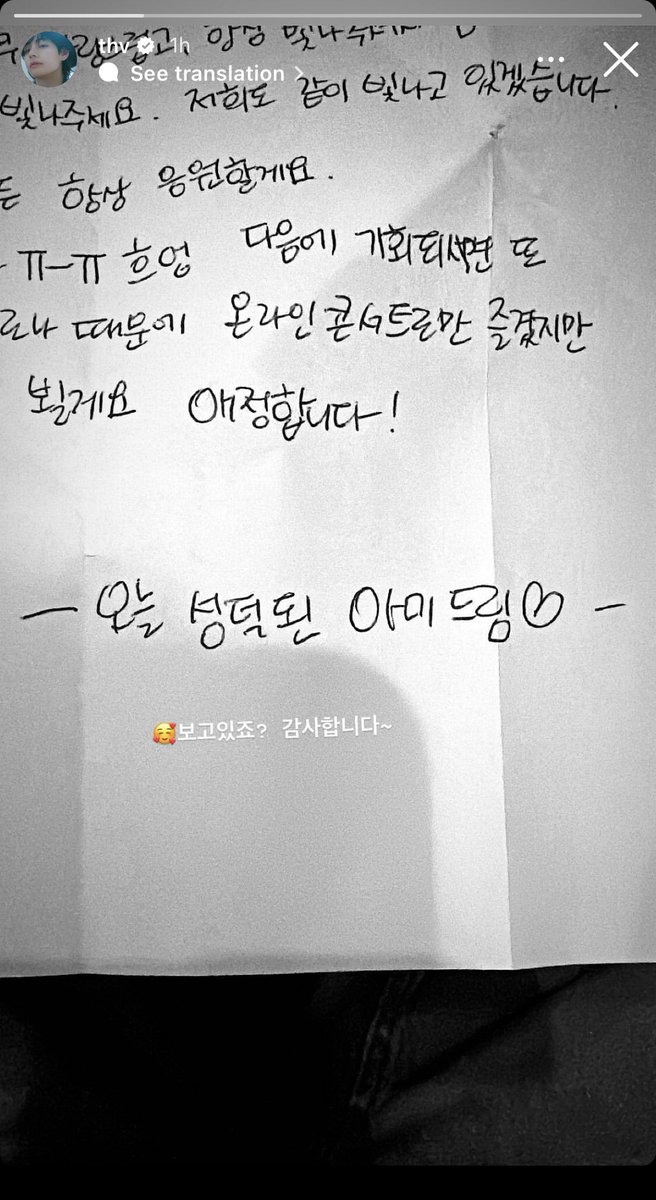 thv 1h
See translation
빛나주세요. 저희도 같이 빛나고 있겠습니다.
든 항상 응원할게요.
ㅠ-ㅠ 흐엉 다음에 기회되시면 또
로나 때문에 온라인 콘서트로만 즐겼지만
뵐게요 애정합니다!
- 오늘 성덕된 아미드림♡ -
🥰보고있죠? 감사합니다~